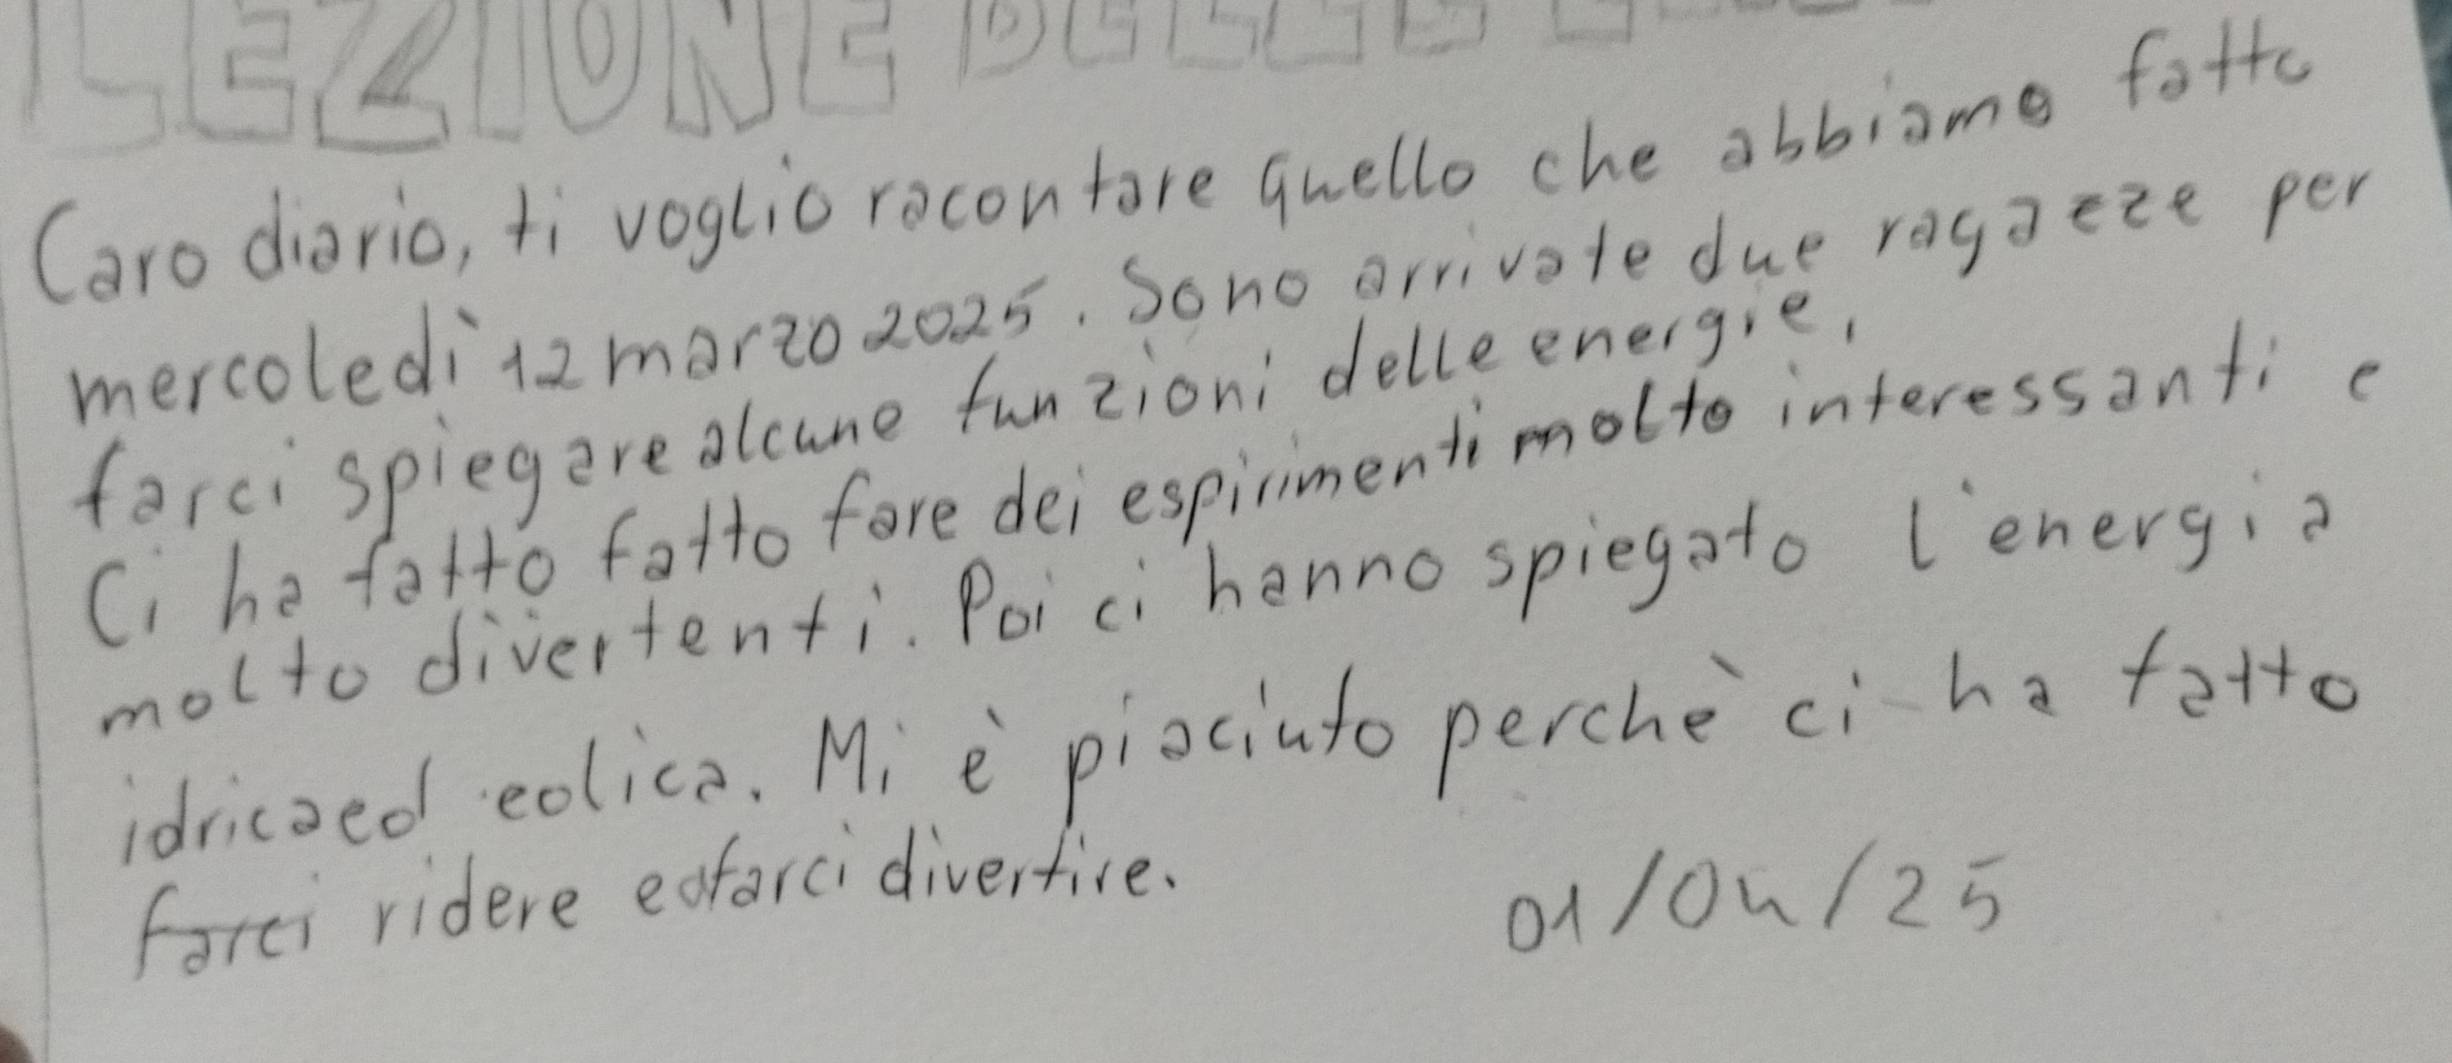 LEZIONE DELLE
Caro diario, ti voglio racontare quello che abbiamo fatto
mercoledì 12 marzo 2025. Sono arrivate due ragazze per
farci spiegare alcune funzioni delle energie.
Ci ha fatto fatto fare dei espirimenti molto interessanti e
molto divertenti. Poi ci hanno spiegato l'energia
idrica ed eolica. Mi è piaciuto perchè ci ha fatto
farci ridere e farci divertire.
01/04/25